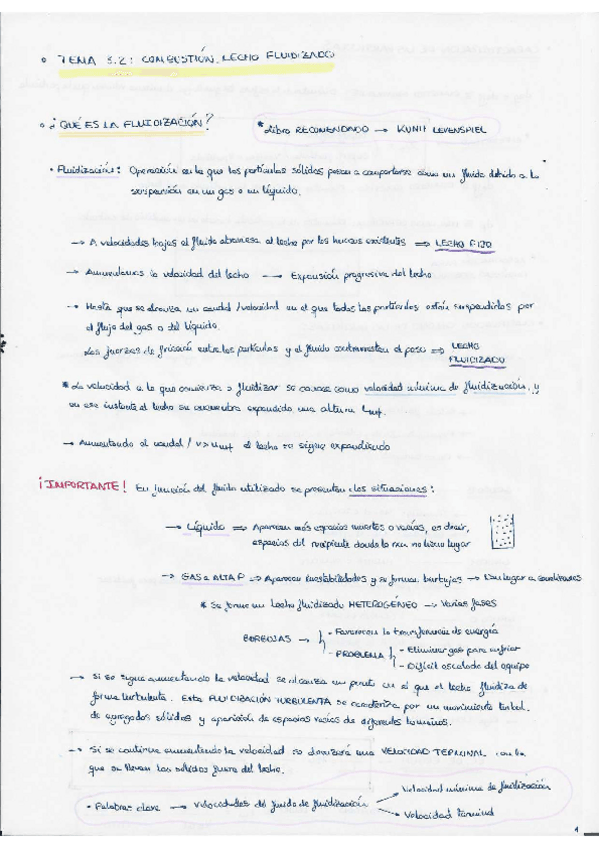 ° TEMA 3.2: COMBUSTIÓN. LECHO FLUIDIZADO
° ¿QUÉ ES LA FLUIDIZACIÓN?
* Libro RECOMENDADO → KUNII LEVENSPIEL
• Fluidización: Operación en la que las partículas sólidas pasan a comportarse como un fluido debido a la
suspensión en un gas o un líquido.
→ A velocidades bajas el fluido atraviesa el lecho por los huecos existentes ⇒ LECHO FIJO
→ Aumentamos la velocidad del lecho → Expansión progresiva del lecho
→ Hasta que se alcanza un caudal/velocidad en el que todas las partículas están suspendidas por
el flujo del gas o del líquido.
Las fuerzas de fricción entre las partículas y el fluido contrarrestan el peso ⇒ LECHO
FLUIDIZADO
* La velocidad a la que comienza a fluidizar se conoce como velocidad mínima de fluidización, y
en ese instante el lecho se encuentra expandido una altura Lmf.
→ Aumentando el caudal / v>umf el lecho se sigue expandiendo
¡IMPORTANTE! En función del fluido utilizado se presentan dos situaciones:
→ Líquido ⇒ Aparecen más espacios muertos o vacíos, es decir,
espacios del recipiente donde la rxn no tiene lugar
→ GAS a ALTA P ⇒ Aparecen inestabilidades y se forman burbujas → Dan lugar a
* Se forma un lecho fluidizado HETEROGÉNEO → Varias fases
BURBUJAS → - Favorecen la transferencia de energía
- PROBLEMA - Eliminar gas para enfriar
- Difícil escalado del equipo
→ Si se sigue aumentando la velocidad se alcanza un punto en el que el lecho fluidiza de
forma turbulenta. Esta FLUIDIZACIÓN TURBULENTA se caracteriza por un movimiento turbul.
de agregados sólidos y aparición de espacios vacíos de diferentes tamaños.
→ Si se continúa aumentando la velocidad se alcanzará una VELOCIDAD TERMINAL con la
que se llevan los sólidos fuera del lecho.
• Palabras clave → Velocidades del fluido de fluidización → Velocidad mínima de fluidización
→ Velocidad terminal
1